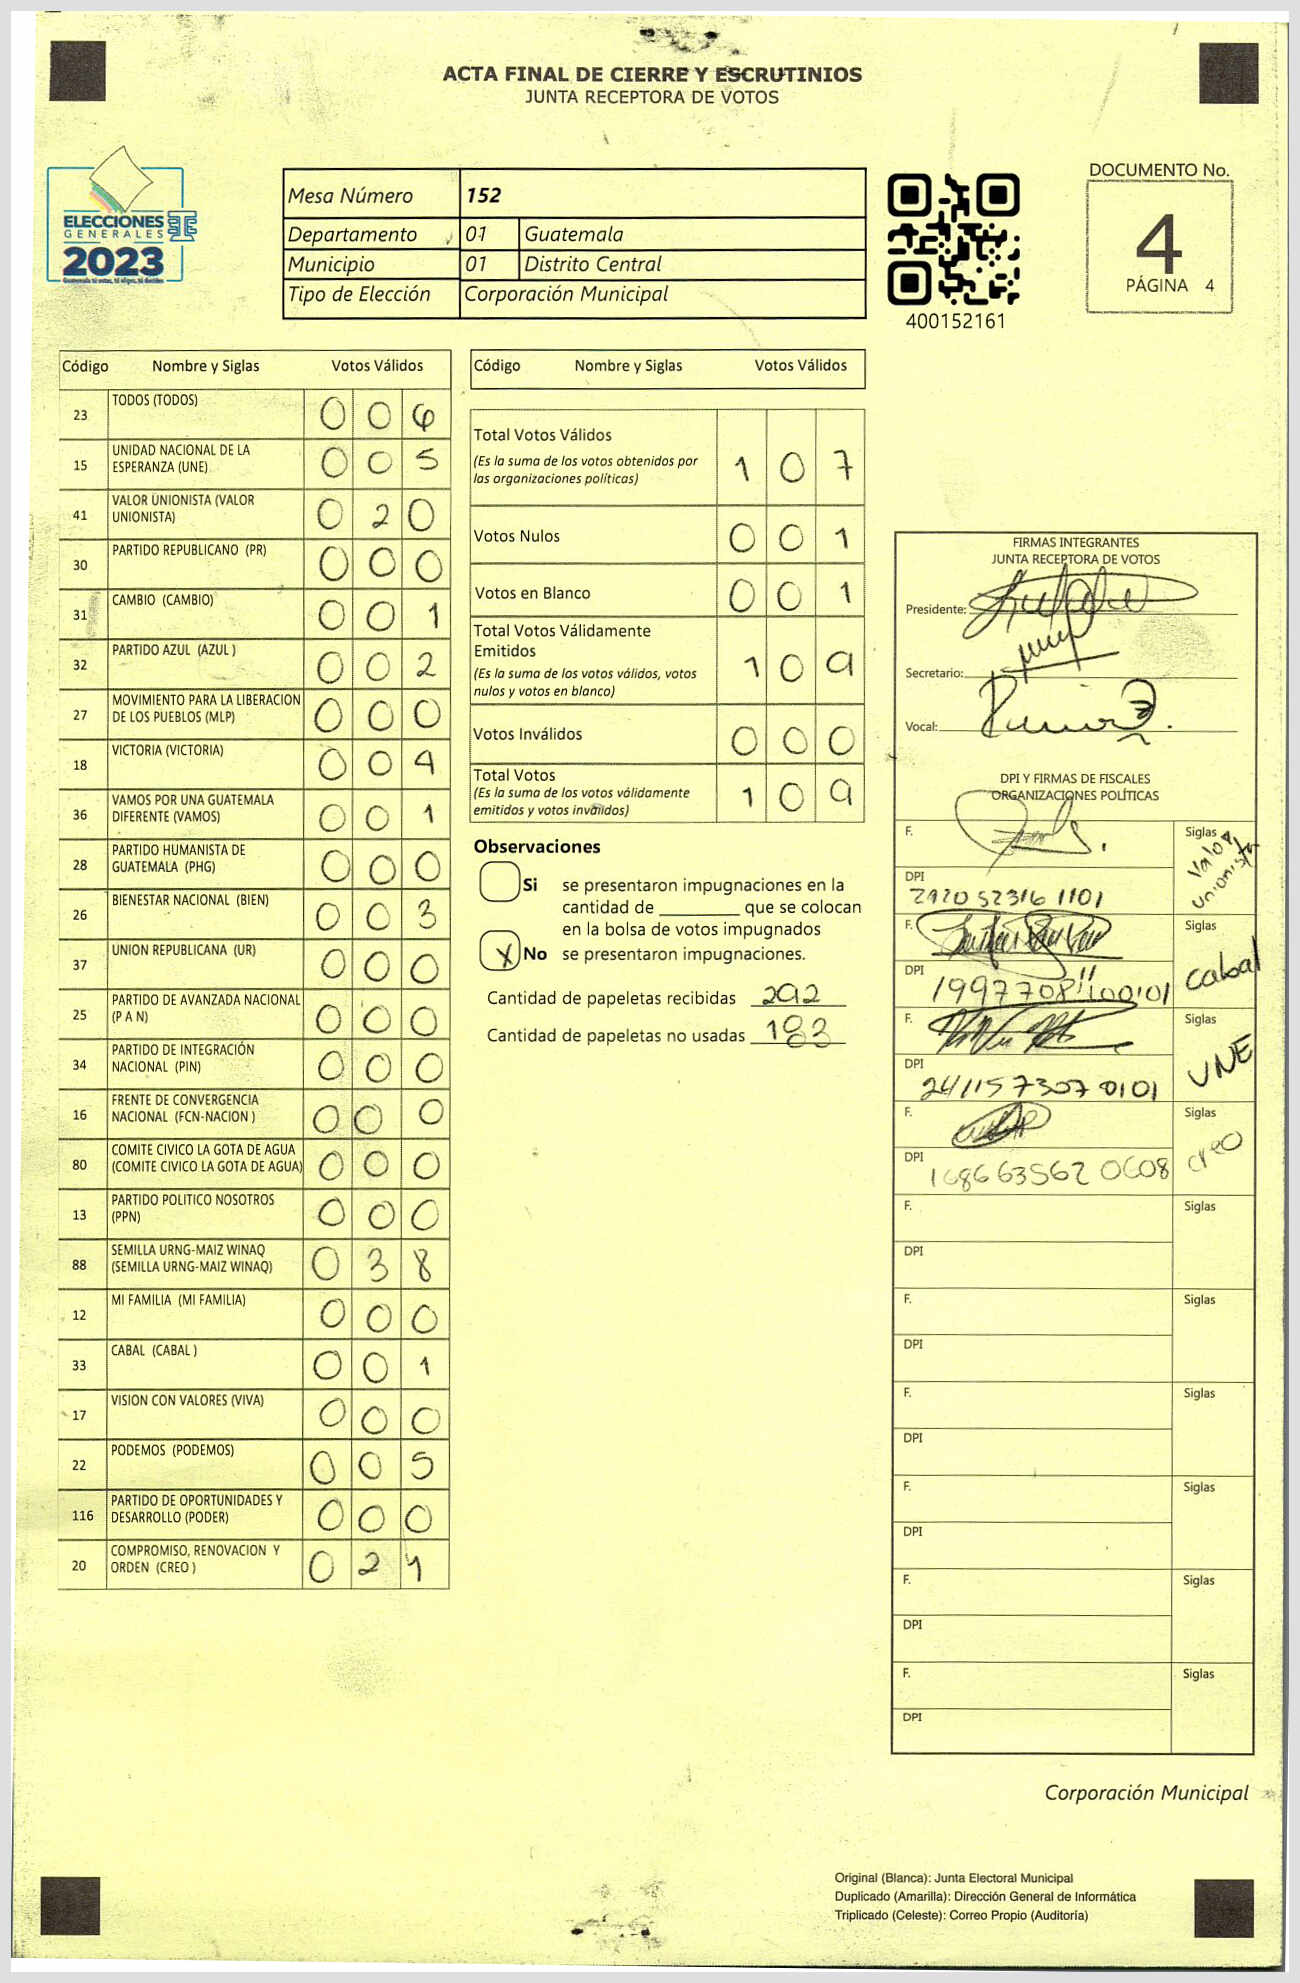 ACTA FINAL DE CIERRE Y ESCRUTINIOS
JUNTA RECEPTORA DE VOTOS
ELECCIONES
GENERALES
2023
Mesa Número 152
Departamento 01 Guatemala
Municipio 01 Distrito Central
Tipo de Elección Corporación Municipal
400152161
DOCUMENTO No.
4
PÁGINA 4
Código Nombre y Siglas Votos Válidos
23 TODOS (TODOS) 0 0 6
15 UNIDAD NACIONAL DE LA
ESPERANZA (UNE) 0 0 5
41 VALOR UNIONISTA (VALOR
UNIONISTA) 0 2 0
30 PARTIDO REPUBLICANO (PR) 0 0 0
31 CAMBIO (CAMBIO) 0 0 1
32 PARTIDO AZUL (AZUL ) 0 0 2
27 MOVIMIENTO PARA LA LIBERACION
DE LOS PUEBLOS (MLP) 0 0 0
18 VICTORIA (VICTORIA) 0 0 4
36 VAMOS POR UNA GUATEMALA
DIFERENTE (VAMOS) 0 0 1
28 PARTIDO HUMANISTA DE
GUATEMALA (PHG) 0 0 0
26 BIENESTAR NACIONAL (BIEN) 0 0 3
37 UNION REPUBLICANA (UR) 0 0 0
25 PARTIDO DE AVANZADA NACIONAL
(P A N) 0 0 0
34 PARTIDO DE INTEGRACIÓN
NACIONAL (PIN) 0 0 0
16 FRENTE DE CONVERGENCIA
NACIONAL (FCN-NACION ) 0 0 0
80 COMITE CIVICO LA GOTA DE AGUA
(COMITE CIVICO LA GOTA DE AGUA) 0 0 0
13 PARTIDO POLITICO NOSOTROS
(PPN) 0 0 0
88 SEMILLA URNG-MAIZ WINAQ
(SEMILLA URNG-MAIZ WINAQ) 0 3 8
12 MI FAMILIA (MI FAMILIA) 0 0 0
33 CABAL (CABAL ) 0 0 1
17 VISION CON VALORES (VIVA) 0 0 0
22 PODEMOS (PODEMOS) 0 0 5
116 PARTIDO DE OPORTUNIDADES Y
DESARROLLO (PODER) 0 0 0
20 COMPROMISO, RENOVACION Y
ORDEN (CREO ) 0 2 1
Código Nombre y Siglas Votos Válidos
Total Votos Válidos
(Es la suma de los votos obtenidos por
las organizaciones políticas) 1 0 7
Votos Nulos 0 0 1
Votos en Blanco 0 0 1
Total Votos Válidamente
Emitidos
(Es la suma de los votos válidos, votos
nulos y votos en blanco) 1 0 9
Votos Inválidos 0 0 0
Total Votos
(Es la suma de los votos válidamente
emitidos y votos inválidos) 1 0 9
Observaciones
Si se presentaron impugnaciones en la
cantidad de ________ que se colocan
en la bolsa de votos impugnados
X No se presentaron impugnaciones.
Cantidad de papeletas recibidas 292
Cantidad de papeletas no usadas 183
FIRMAS INTEGRANTES
JUNTA RECEPTORA DE VOTOS
Presidente:
Secretario:
Vocal:
DPI Y FIRMAS DE FISCALES
ORGANIZACIONES POLÍTICAS
F. Siglas
Valor
Unionista
DPI
2920 52316 1101
F. Siglas
Cabal
DPI
F. Siglas
UNE
DPI
24115 7307 0101
F. Siglas
creo
DPI
1686 63562 0608
F. Siglas
DPI
F. Siglas
DPI
F. Siglas
DPI
F. Siglas
DPI
F. Siglas
DPI
F. Siglas
DPI
Corporación Municipal
Original (Blanca): Junta Electoral Municipal
Duplicado (Amarilla): Dirección General de Informática
Triplicado (Celeste): Correo Propio (Auditoría)